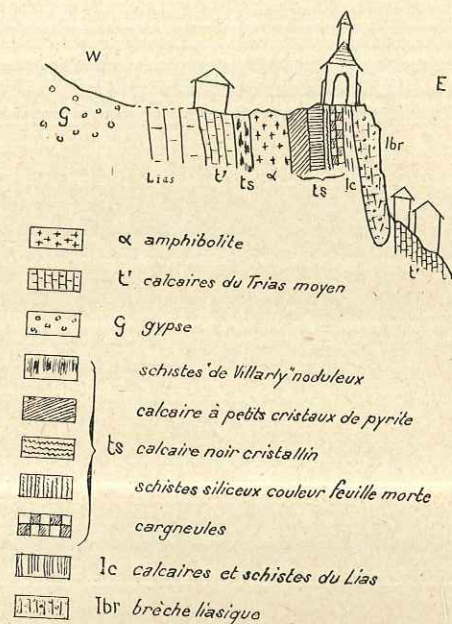 W
E
G
lbr
Lias
t'
ts
α
ts
lc
t'
α amphibolite
t' calcaires du Trias moyen
G gypse
schistes "de Villarly" noduleux
calcaire à petits cristaux de pyrite
ts calcaire noir cristallin
schistes siliceux couleur feuille morte
cargneules
lc calcaires et schistes du Lias
lbr brèche liasique